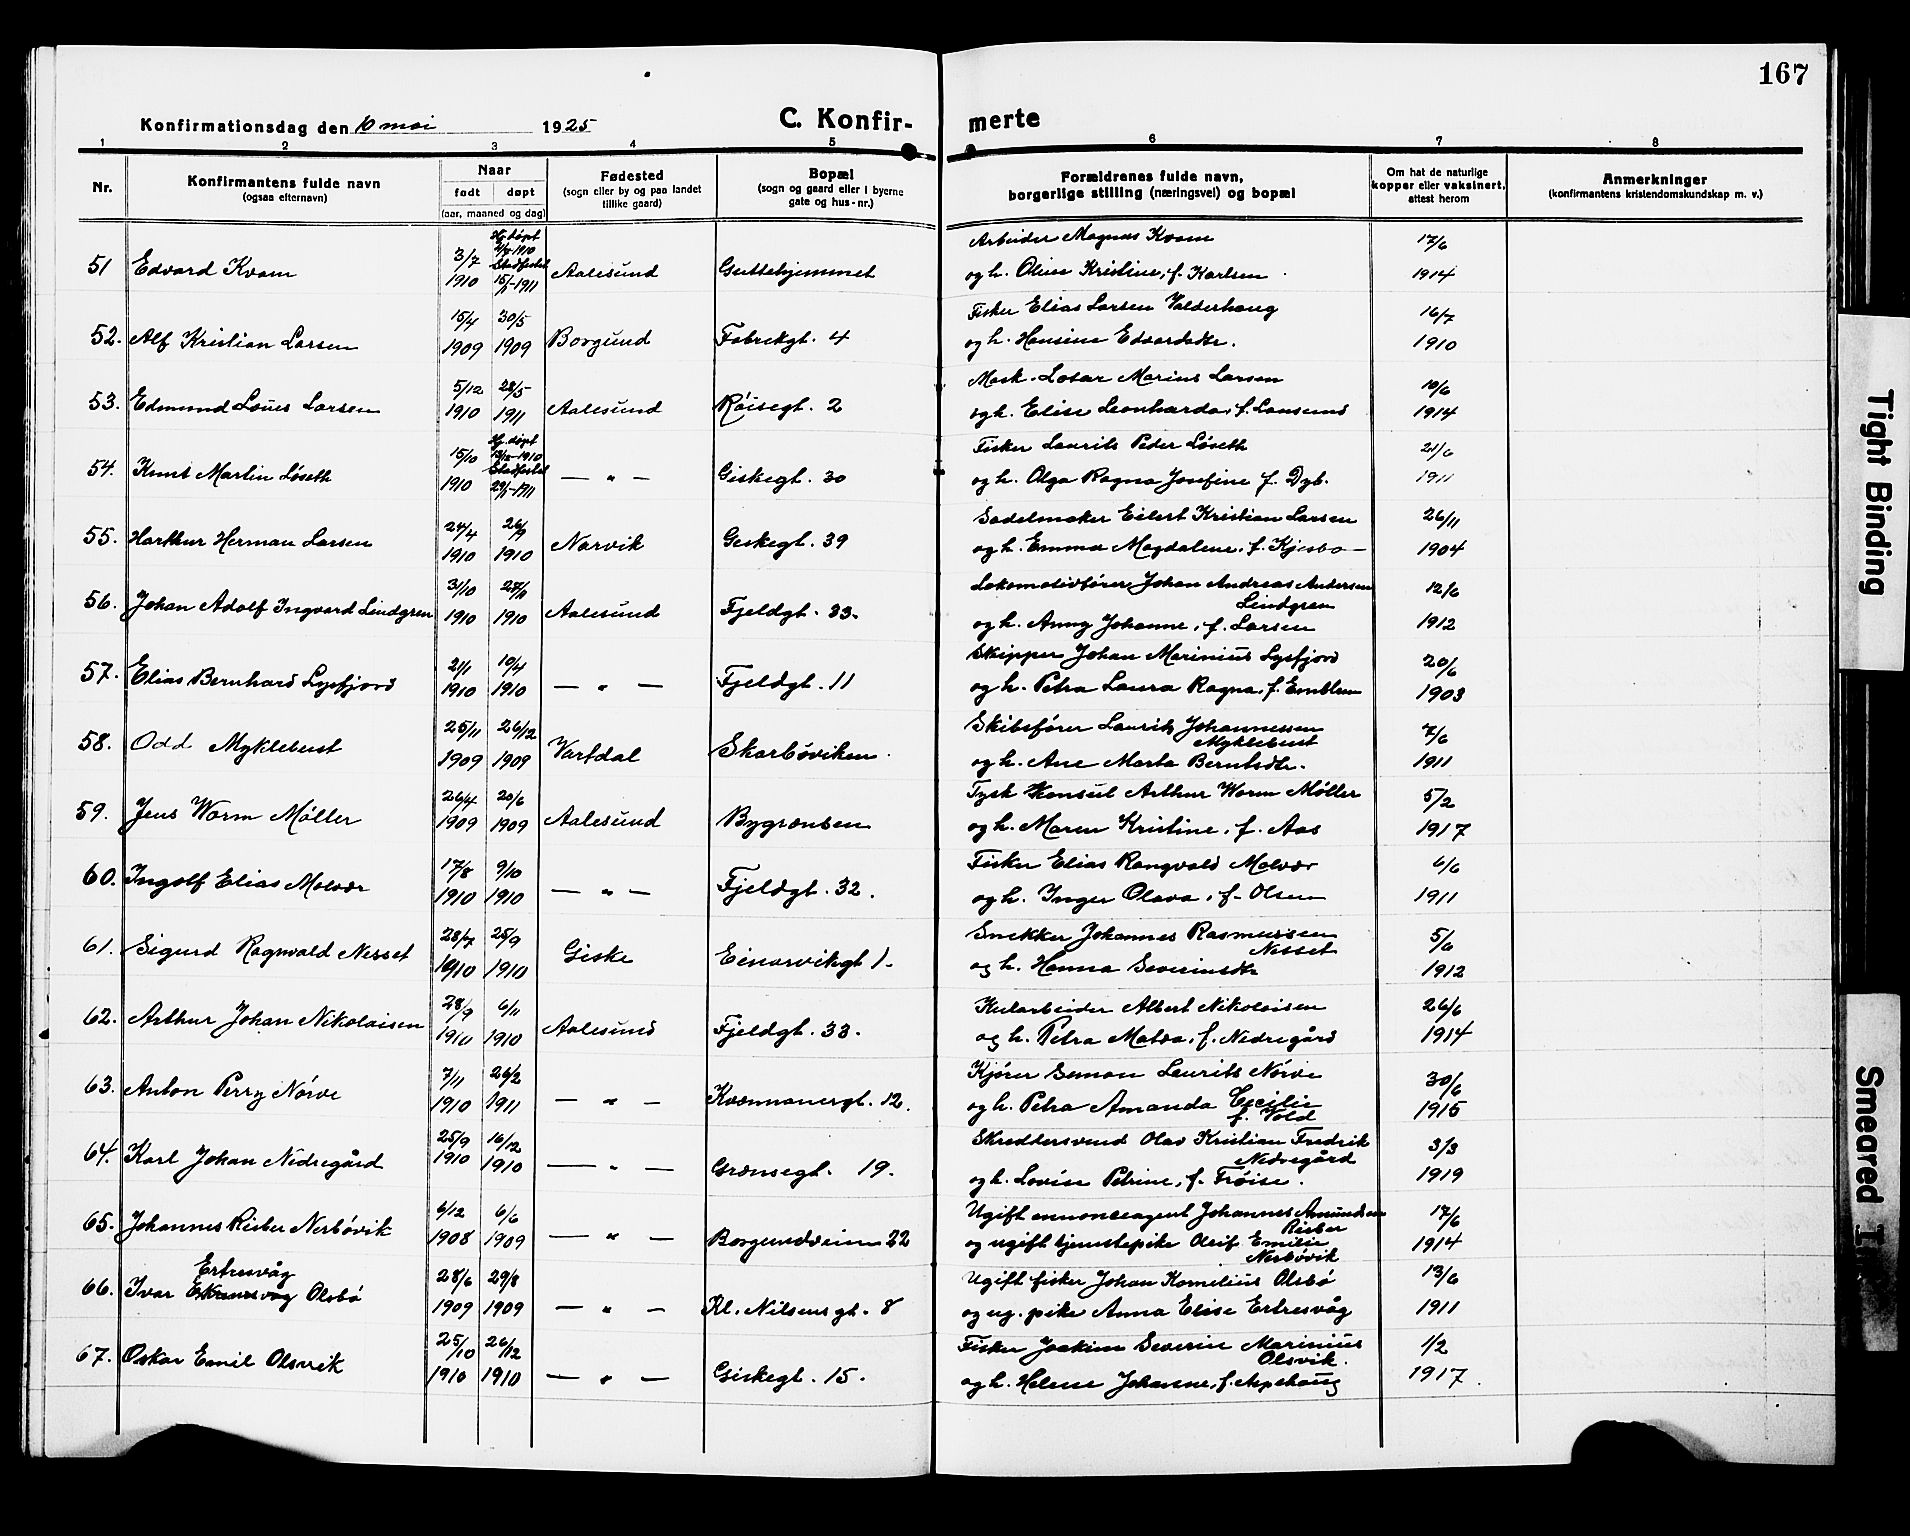 167
Konfirmationsdag den 10 mai 1925
C. Konfir-
merte
1 2 3 4 5 6 7 8
Nr.
Konfirmantens fulde navn
(ogsaa efternavn)
Naar
født døpt
(aar, maaned og dag)
Fødested
(sogn eller by og paa landet
tillike gaard)
Bopæl
(sogn og gaard eller i byerne
gate og hus-nr.)
Forældrenes fulde navn,
borgerlige stilling (næringsvei) og bopæl
Om hat de naturlige
kopper eller vaksinert,
attest herom
Anmerkninger
(konfirmantens kristendomskundskap m. v.)
51 Edvard Kvam 3/7 1910 Hj. døpt 1910 Stadfestet 15/1-1911 Aalesund Guttehjemmet
Arbeider Magnus Kvam 17/6
og h. Oline Kristine, f. Karlsen 1914
52. Alf Kristian Larsen 15/4 1909 30/5 1909 Borgund Fabrikgt. 4
Fisker Elias Larsen Valderhaug 16/7
og h. Hansine Edvardsdtr. 1910
53. Edmund Louis Larsen 5/12 1910 28/5 1911 Aalesund Røisegt. 2
Mask. Lotar Marius Larsen 10/6
og h. Elise Leonharda, f. 1914
54. Knut Martin Løseth 15/10 1910 Hj. døpt 13/12-1910 Stadfestet 1911 — " — Giskegt. 30
Fisker Laurits Peder Løseth 21/6
og h. Olga Ragna Josefine f. Dyb. 1911
55. Harthur Herman Larsen 24/4 1910 26/9 1910 Narvik Giskegt. 39
Sadelmaker Eilert Kristian Larsen 26/11
og h. Emma Magdalene, f. Kjesbo — 1904
56. Johan Adolf Ingvard Lindgren 31/10 1910 27/11 1910 Aalesund Fjeldgt. 33.
Lokomotivfører Johan Andreas Andersen 12/6
Lindgren
og h. Anny Johanne, f. Larsen 1912
57. Elias Bernhard Lysfjord 21/1 1910 10/4 1910 — " — Fjeldgt. 11
Skipper Johan Marinius Lysfjord 20/6
og h. Petra Laura Ragna, f. Emblem 1903
58. Odd Myklebust 25/11 1909 26/12 1909 Vartdal Skarbøviken.
Skibsfører Laurits Johannessen 7/6
Myklebust
og h. Ane Marta Berntsdtr. 1911
59. Jens Worm Møller 26/4 1909 20/6 1909 Aalesund Bygrænsen
Tysk Konsul Arthur Worm Møller 5/2
og h. Maren Kristine, f. Aas 1917
60. Ingolf Elias Molvær 17/8 1910 9/10 1910 — " — Fjeldgt. 32.
Fisker Elias Rangvald Molvær 6/6
og h. Inger Olava, f. Olsen 1911
61. Sigurd Ragnvald Nesset 28/7 1910 25/9 1910 Giske Einarvikgt 1.
Snekker Johannes Rasmussen 5/6
Nesset
og h. Hanna Severinsdtr 1912
62. Arthur Johan Nikolaisen 28/9 1910 6/11 1910 Aalesund Fjeldgt. 33.
Kularbeider Albert Nikolaisen 26/6
og h. Petra Matea, f. Nedregård 1914
63. Anton Perry Nørve 7/11 1910 26/2 1911 — " — Kvennanergt. 12.
Kjører Simon Laurits Nørve 30/6
og h. Petra Amanda Cecilie 1915
f. Vold
64. Karl Johan Nedregård 25/9 1910 16/12 1910 — " — Grænsegt. 19.
Skræddersvend Olav Kristian Fredrik 3/3
Nedregård
og h. Lovise Petrine, f. Frøise. 1919
65. Johannes Risber Nerbøvik 6/12 1908 6/6 1909 — " — Borgundveien 22
Ugift annonceagent Johannes Amundsen 17/6
Risber
og ugift tjenestepike Oleif Emilie 1914
Nerbøvik
66. Ivar Ertresvåg Olsbø 28/6 1909 29/8 1909 — " — Kl. Nilsens gt. 8
Ugift fisker Johan Kornelius Olsbø 13/6
og ug. pike Anna Elise Ertresvåg 1911
67. Oskar Emil Olsvik 25/10 1910 26/12 1910 — " — Giskegt. 15.
Fisker Joakim Severin Marinius 1/2
Olsvik.
og h. Helene Johanne, f. Aspehaug 1917.
Tight Binding
Smeared